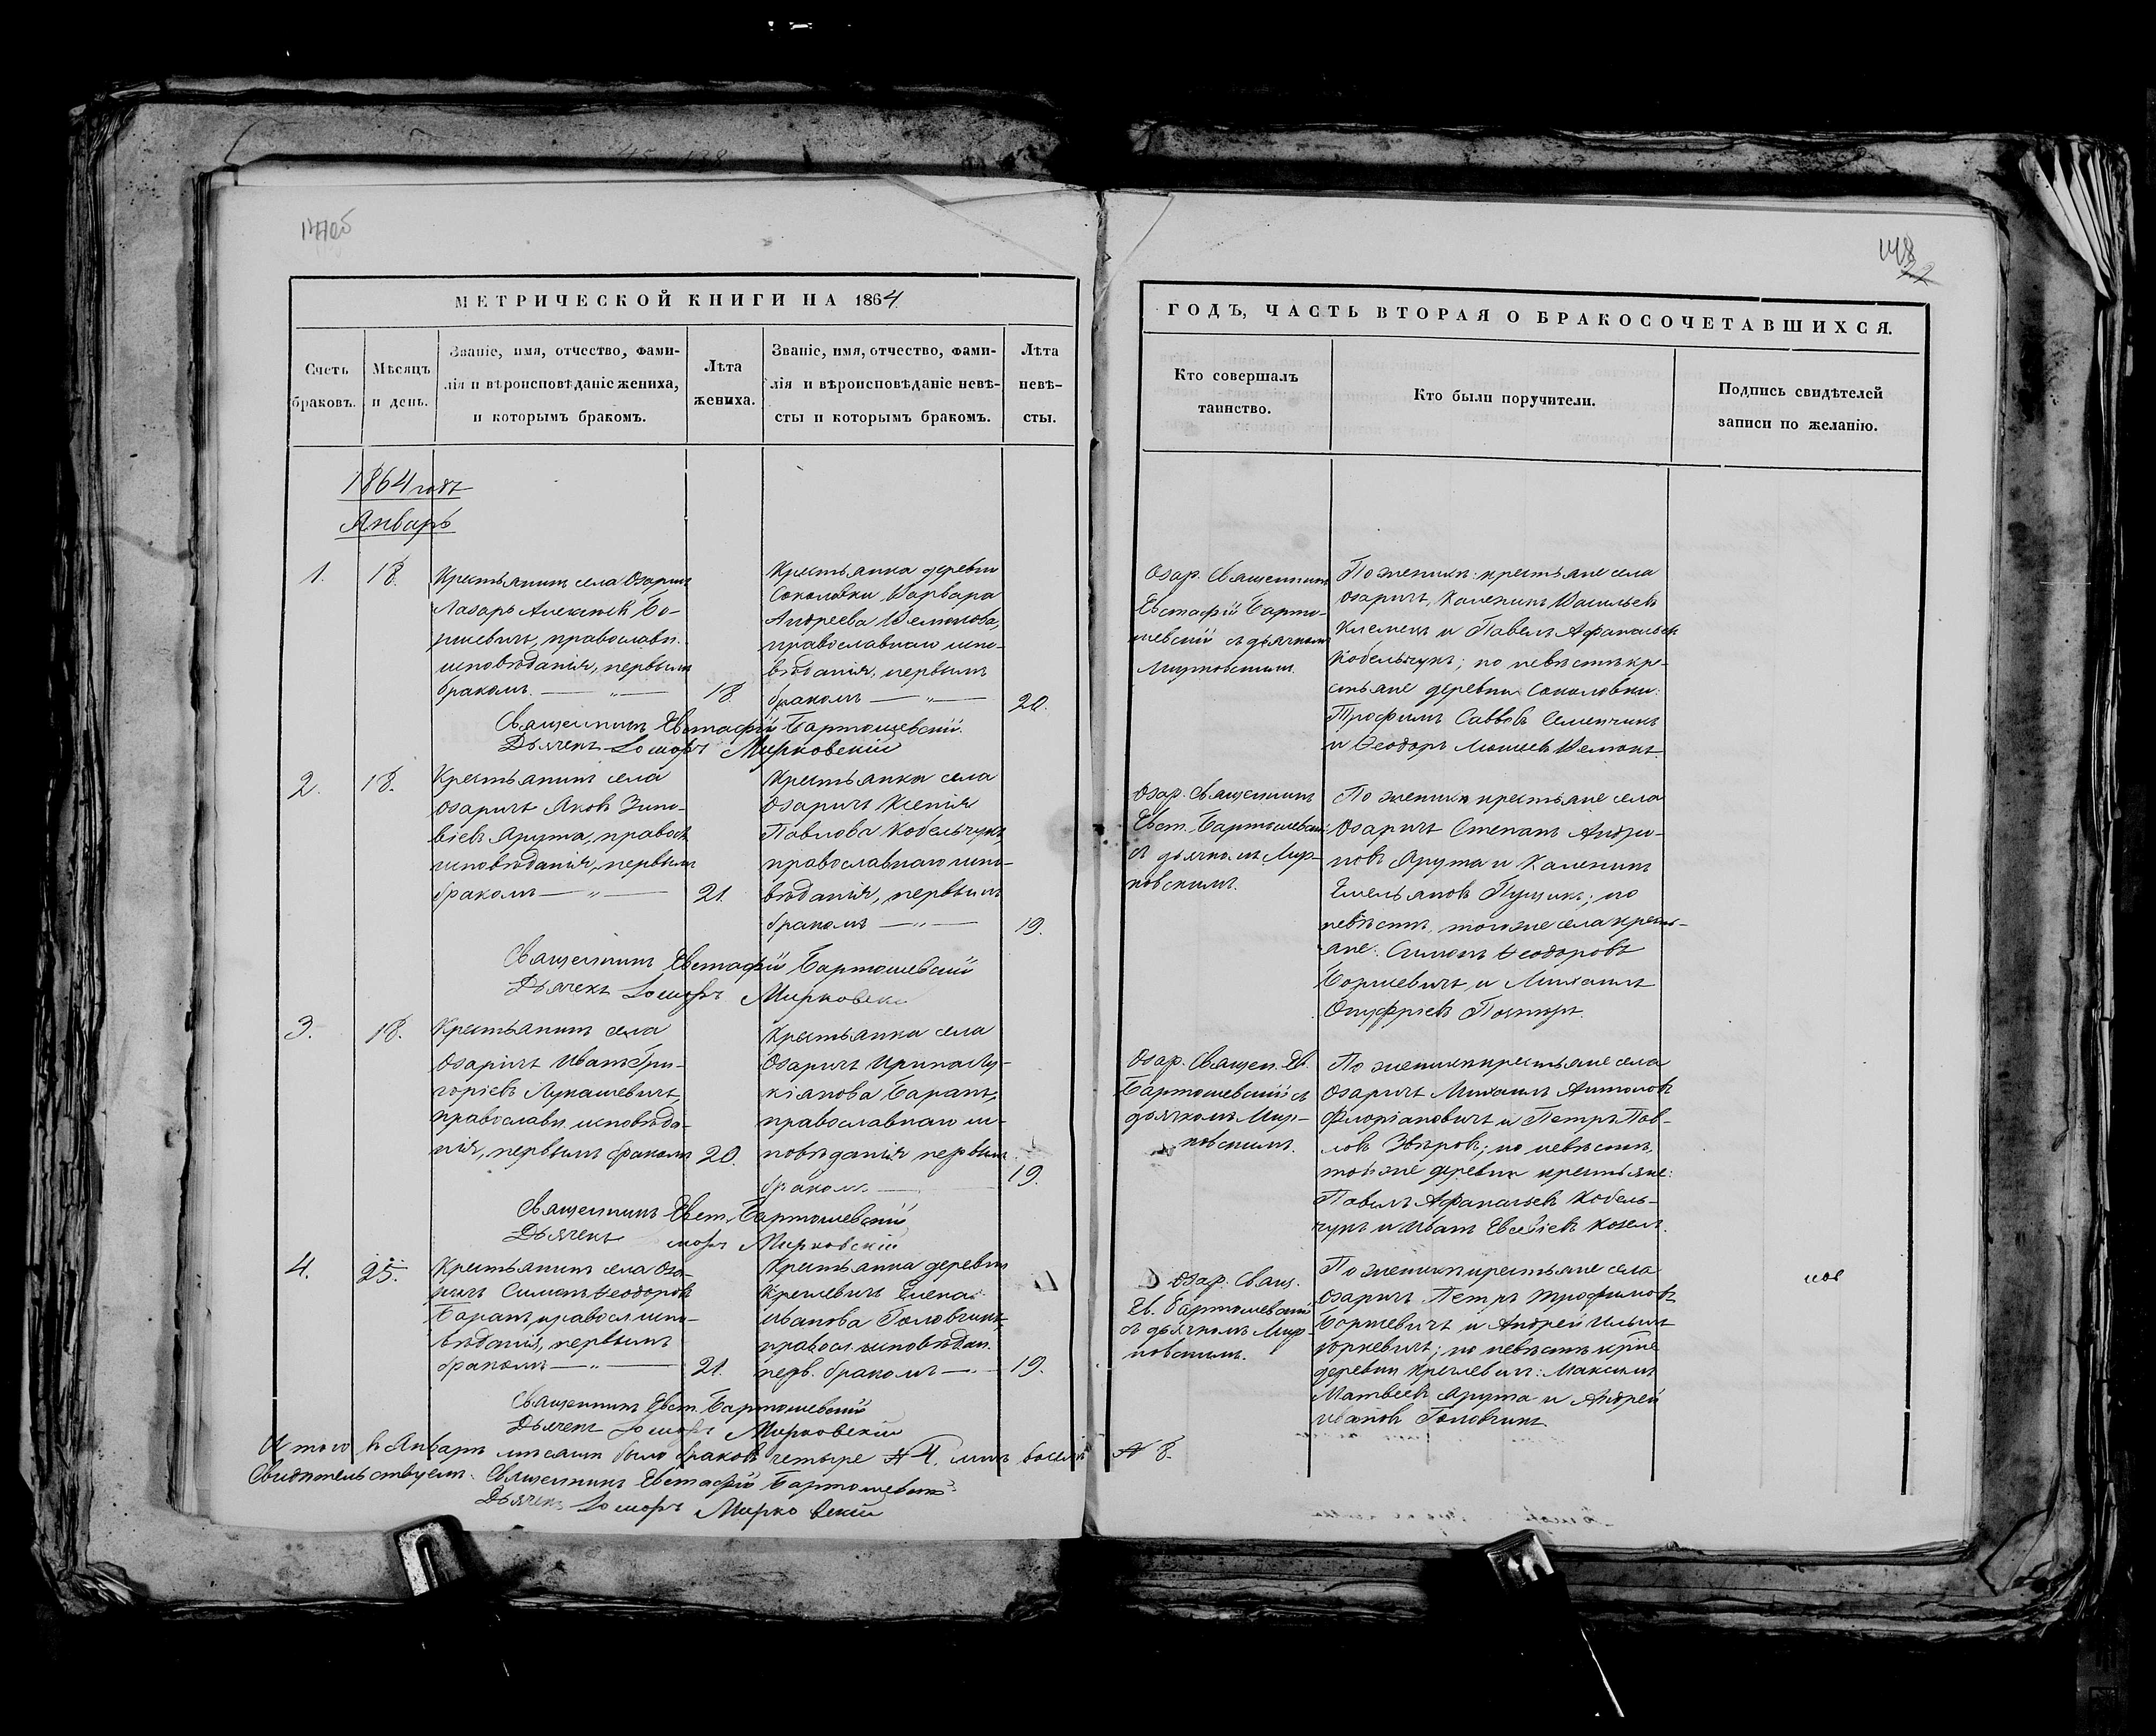 147об
МЕТРИЧЕСКОЙ КНИГИ НА 1864
Счетъ браковъ.
Мѣсяцъ и день.
Званіе, имя, отчество, фами-
лія и вѣроисповѣданіе жениха,
и которымъ бракомъ.
Лѣта жениха.
Званіе, имя, отчество, фами-
лія и вѣроисповѣданіе невѣ-
сты и которымъ бракомъ.
Лѣта невѣ-
сты.
1864 годъ
Январь
1.
18.
Крестьянинъ села Озаричъ
Лазарь Алексѣевъ Бо-
ришевичъ, православн.
исповѣданія, первымъ
бракомъ. — „ —
18.
Крестьянка деревни
Соколовки Варвара
Андреева
православнаго испо-
вѣданія, первымъ
бракомъ — „ —
20.
Священникъ Евстафій Бартошевскій.
Дьячекъ Мирковскій
2.
18.
Крестьянинъ села
Озаричъ Яковъ Зино-
віевъ Ярута, правосл.
исповѣданія, первымъ
бракомъ — „ —
21.
Крестьянка села
Озаричъ Ксенія
Павлова Кобельчукъ,
православнаго испо-
вѣданія, первымъ
бракомъ — „ —
19.
Священникъ Евстафій Бартошевскій
Дьячекъ Мирковскі
3.
18.
Крестьянинъ села
Озаричъ Иванъ Гри-
горіевъ Лукашевичъ,
православн. исповѣда-
нія, первымъ бракомъ
20.
Крестьянка села
Озаричъ Ирина Лу-
кіянова Баранъ,
православнаго ис-
повѣданія первым
бракомъ. —
19.
Священникъ Евст. Бартошевскій
Дьячекъ Мирковскій
4.
25.
Крестьянинъ села Оза-
ричъ Симонъ Ѳеодоровъ
Баранъ, правосл. испо-
вѣданія, первымъ
бракомъ — „ —
21.
Крестьянка деревни
Кремевичъ Елена
Иванова Головчикъ,
правосл. исповѣдан.
перв. бракомъ —
19.
Священникъ Евст. Бартошевскій
Дьячекъ Мирковскій
Итого въ Январѣ мѣсяцѣ было браковъ четыре № 4. лицъ восемь № 8.
Свидѣтельствуемъ: Священникъ Евстафій Бартошевскій
Дьячекъ Мирковскій
148
ГОДЪ, ЧАСТЬ ВТОРАЯ О БРАКОСОЧЕТАВШИХСЯ.
Кто совершалъ
таинство.
Кто были поручители.
Подпись свидѣтелей
записи по желанію.
Озар. Священникъ
Евстафій Барто-
шевскій съ дьячкомъ
Мирковскимъ.
По женихѣ: крестьяне села
Озаричъ, Каленикъ Васильевъ
Клемецъ и Павелъ Афанасьевъ
Кобельчукъ; по невѣстѣ кре-
стьяне деревни Соколовки:
Трофимъ Саввовъ Семенчикъ
и Ѳеодоръ
Озар. Священникъ
Евст. Бартошевскій
съ дьячкомъ Мир-
ковскимъ.
По женихѣ крестьяне села
Озаричъ Степанъ Андро-
новъ Ярута и Каленикъ
Емельяновъ Пущикъ; по
невѣстѣ, тогоже села кресть-
яне: Симонъ Ѳеодоровъ
Боришевичъ и Михаилъ
Онуфріевъ
Озар. Священ. Ев.
Бартошевскій съ
дьячкомъ Мир-
ковскимъ.
По женихѣ крестьяне села
Озаричъ Михаилъ Антоновъ
Флоріановичъ и Петръ Пав-
ловъ Звѣровъ; по невѣстѣ,
той же деревни крестьяне:
Павелъ Афанасьевъ Кобель-
чукъ и Иванъ Евсевіевъ Козелъ.
Озар. Свящ.
Ев. Бартошевскій
съ дьячкомъ Мир-
ковскимъ.
По женихѣ крестьяне села
Озаричъ Петръ Трофимовъ
Боришевичъ и Андрей Ильинъ
Юркевичъ; по невѣстѣ крⷭ҇не
деревни Кремевичъ: Максимъ
Матвеевъ Ярута и Андрей
Ивановъ Головчикъ